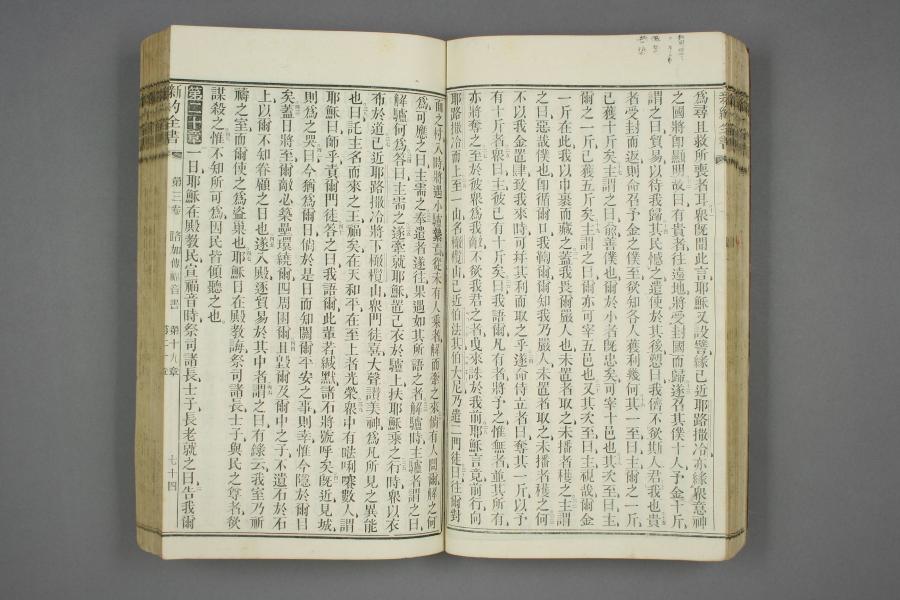 爲尋且救所喪者耳衆旣聞此言耶穌又設譬緣已近耶路撒冷亦緣衆意神
之國將卽顯明故曰有貴者往遠地將受封國而歸遂召其僕十人予金十斤
謂之曰貿易以待我歸其民憾之遣使於其後愬曰我儕不欲斯人君我也貴
者受封而返則命召予金之僕至欲知各人獲利幾何其一至曰主爾之一斤
已獲十斤矣主謂之曰俞善僕也爾於小者旣忠矣可宰十邑也其次至曰主
爾之一斤已獲五斤矣主謂之曰爾亦可宰五邑也又其次至曰主視哉爾金
一斤在此我以巾裹而藏之蓋我畏爾嚴人也未置者取之未播者穫之主謂
之曰惡哉僕也卽循爾口我鞫爾爾知我乃嚴人未置者取之未播者穫之何
不以我金置肆致我來時可并其利而取之乎遂命侍立者曰奪其一斤以予
有十斤者衆曰主彼已有十斤矣曰我語爾凡有者將予之惟無者並其所有
亦將奪之至於彼衆爲我敵不欲我君之者曳來誅於我前耶穌言竟前行向
耶路撒冷而上至一山名橄欖山已近伯法其伯大尼乃遣二門徒曰往爾對
面之村入時將遇小驢縶焉從未有人乘者解而牽之來倘有人問爾解之何
爲可應之曰主需之奉遣者遂往果遇如其所語之者解驢時主驢者謂之曰
解驢何爲答曰主需之遂牽就耶穌置己衣於驢上扶耶穌乘之行時衆以衣
布於道已近耶路撒冷將下橄欖山衆門徒喜大聲讚美神爲凡所見之異能
也曰託主名而來之王福矣在天和平在至上者光榮衆中有𠵽唎㘔數人謂
耶穌曰師乎責爾門徒答之曰我語爾此輩若緘默諸石將號呼矣旣近見城
則爲之哭曰今猶爲爾日倘於是日而知關爾平安之事則幸惟今隱於爾目
矣蓋日將至爾敵必築壘環繞爾四周困爾且毀爾及爾中之子不遺石於石
上以爾不知眷顧之日也遂入殿逐貿易於其中者謂之曰有錄云我室乃祈
禱之室而爾使之爲盜巢也耶穌日在殿教誨祭司諸長士子與民之尊者欲
謀殺之惟不知所可爲因民皆傾聽之也
第二十章 一日耶穌在殿教民宣福音時祭司諸長士子長老就之曰告我爾
新約全書 第三卷 路加傳福音書 第十九章 七十四